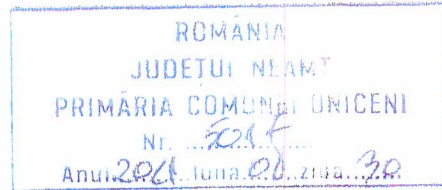 ROMÂNIA
JUDEȚUL NEAMȚ
PRIMĂRIA COMUNEI ONICENI
Nr.
Anul luna ziua 30